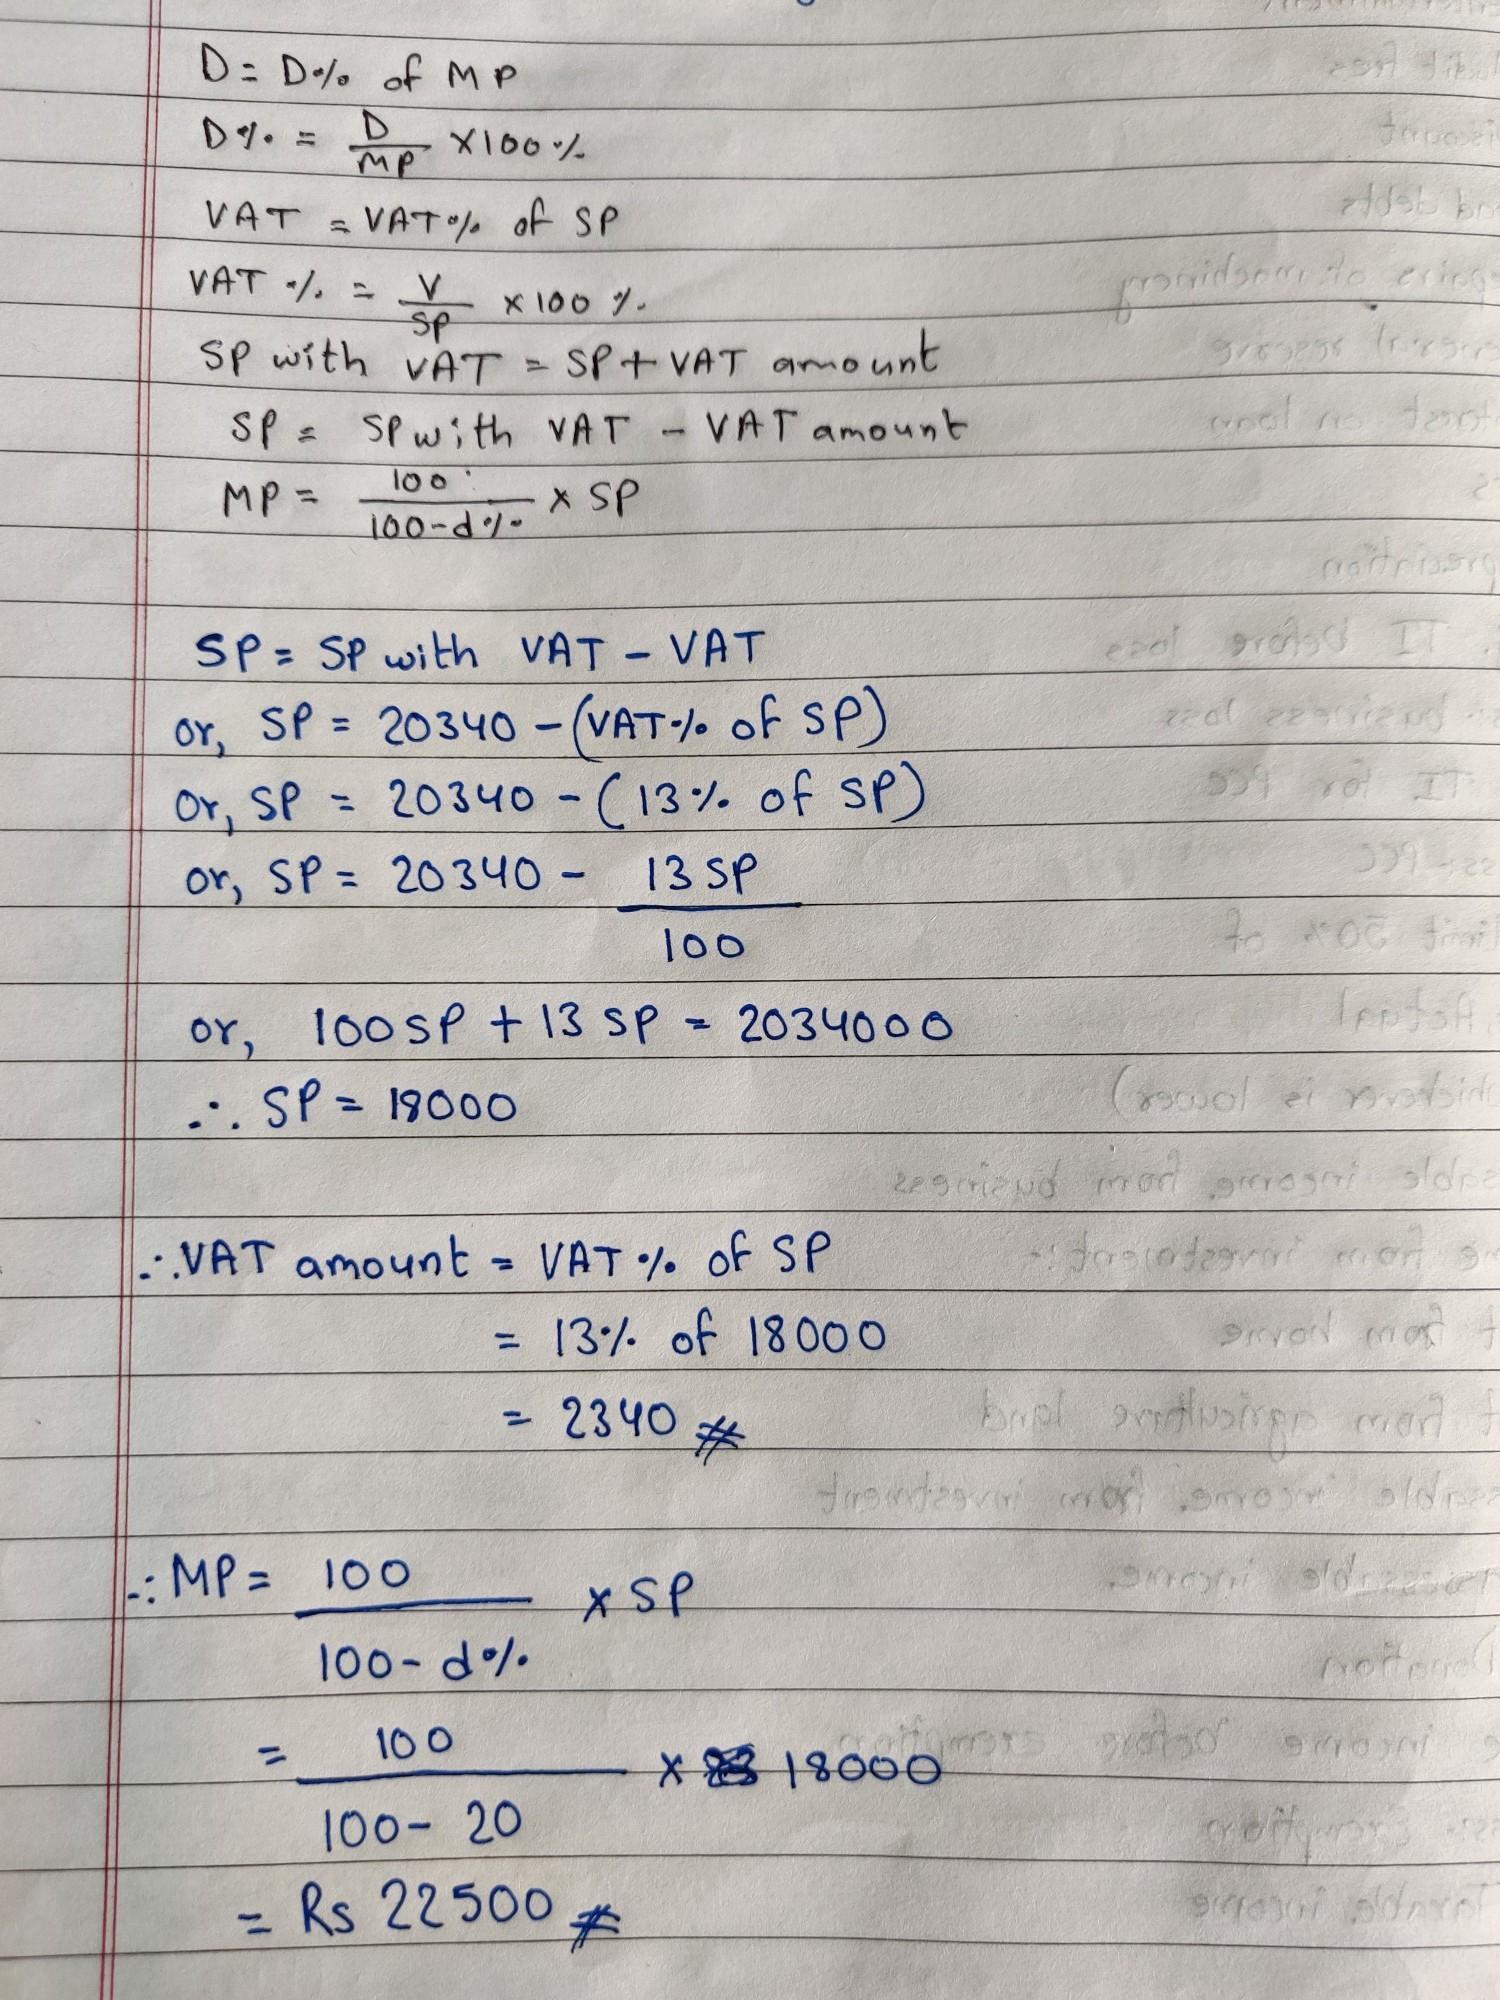 D = D% of MP
D% = D/MP ×100%
VAT = VAT% of SP
VAT % = V/SP × 100 %
SP with VAT = SP + VAT amount
SP = SP with VAT - VAT amount
MP = 100/100-d% × SP
SP = SP with VAT - VAT
or, SP = 20340 - (VAT% of SP)
or, SP = 20340 - (13% of SP)
or, SP = 20340 - 13 SP/100
or, 100SP + 13 SP = 2034000
∴ SP = 18000
∴ VAT amount = VAT % of SP
= 13% of 18000
= 2340 #
∴ MP = 100/100-d% × SP
= 100/100-20 × 18000
= Rs 22500 #